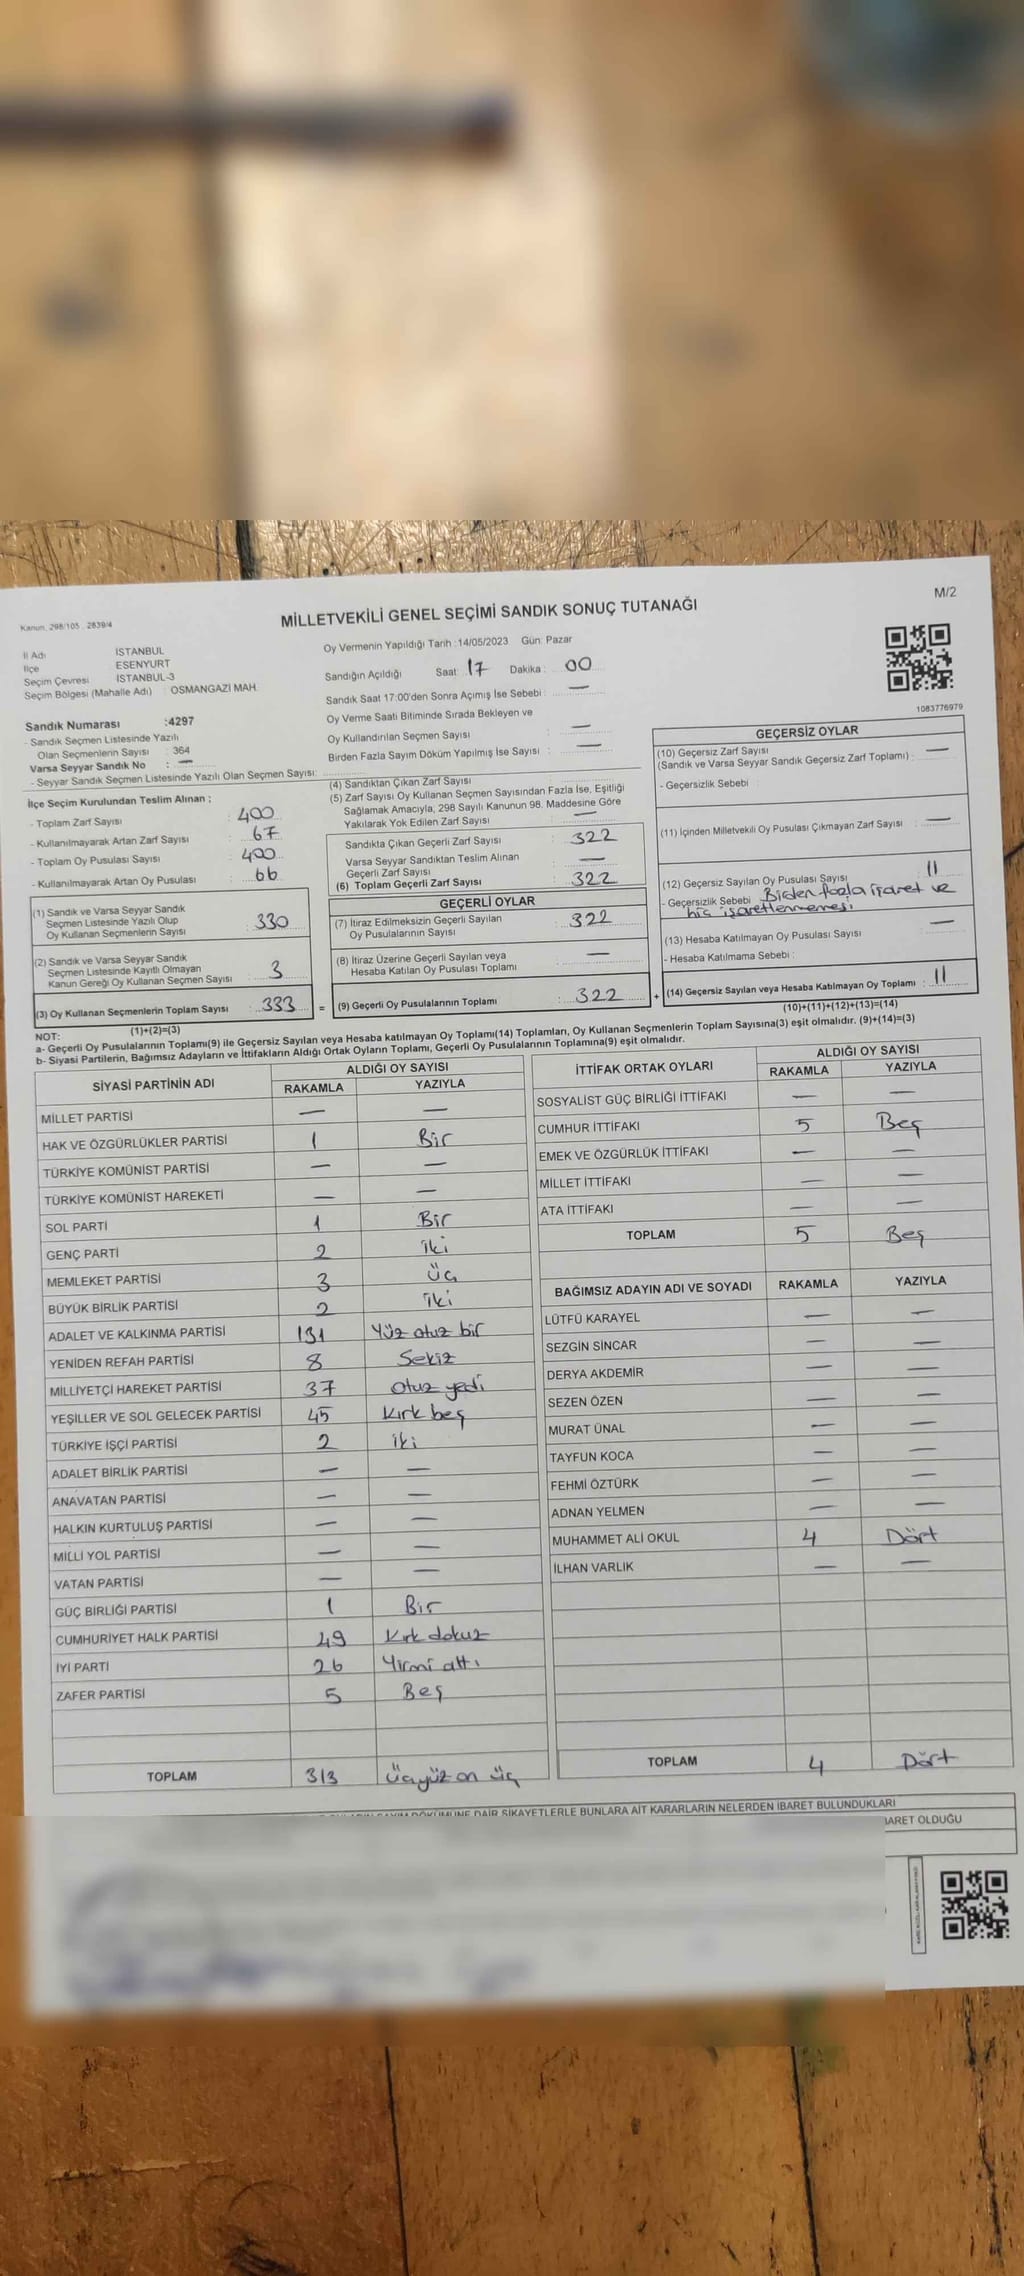 Kanun. 298/105 . 2839/4
MİLLETVEKİLİ GENEL SEÇİMİ SANDIK SONUÇ TUTANAĞI
M/2
İl Adı İSTANBUL
İlçe ESENYURT
Seçim Çevresi İSTANBUL-3
Seçim Bölgesi (Mahalle Adı) : OSMANGAZİ MAH.
Sandık Numarası :4297
- Sandık Seçmen Listesinde Yazılı
Olan Seçmenlerin Sayısı : 364
Varsa Seyyar Sandık No : —
- Seyyar Sandık Seçmen Listesinde Yazılı Olan Seçmen Sayısı:
Oy Vermenin Yapıldığı Tarih :14/05/2023 Gün: Pazar
Sandığın Açıldığı Saat: 17 Dakika : 00
Sandık Saat 17:00'den Sonra Açımış İse Sebebi : —
Oy Verme Saati Bitiminde Sırada Bekleyen ve
Oy Kullandırılan Seçmen Sayısı : —
Birden Fazla Sayım Döküm Yapılmış İse Sayısı : —
1083776979
İlçe Seçim Kurulundan Teslim Alınan :
- Toplam Zarf Sayısı : 400
- Kullanılmayarak Artan Zarf Sayısı : 67
- Toplam Oy Pusulası Sayısı : 400
- Kullanılmayarak Artan Oy Pusulası : 66
(1) Sandık ve Varsa Seyyar Sandık
Seçmen Listesinde Yazılı Olup
Oy Kullanan Seçmenlerin Sayısı : 330
(2) Sandık ve Varsa Seyyar Sandık
Seçmen Listesinde Kayıtlı Olmayan
Kanun Gereği Oy Kullanan Seçmen Sayısı : 3
(3) Oy Kullanan Seçmenlerin Toplam Sayısı : 333 =
(1)+(2)=(3)
(4) Sandıktan Çıkan Zarf Sayısı :
(5) Zarf Sayısı Oy Kullanan Seçmen Sayısından Fazla İse, Eşitliği
Sağlamak Amacıyla, 298 Sayılı Kanunun 98. Maddesine Göre
Yakılarak Yok Edilen Zarf Sayısı : —
Sandıkta Çıkan Geçerli Zarf Sayısı : 322
Varsa Seyyar Sandıktan Teslim Alınan
Geçerli Zarf Sayısı : —
(6) Toplam Geçerli Zarf Sayısı : 322
GEÇERLİ OYLAR
(7) İtiraz Edilmeksizin Geçerli Sayılan
Oy Pusulalarının Sayısı : 322
(8) İtiraz Üzerine Geçerli Sayılan veya
Hesaba Katılan Oy Pusulası Toplamı : —
(9) Geçerli Oy Pusulalarının Toplamı : 322 +
GEÇERSİZ OYLAR
(10) Geçersiz Zarf Sayısı
(Sandık ve Varsa Seyyar Sandık Geçersiz Zarf Toplamı) : —
- Geçersizlik Sebebi :
(11) İçinden Milletvekili Oy Pusulası Çıkmayan Zarf Sayısı : —
(12) Geçersiz Sayılan Oy Pusulası Sayısı : 11
- Geçersizlik Sebebi : Birden fazla işaret ve
hiç işaretlenmemesi
(13) Hesaba Katılmayan Oy Pusulası Sayısı : —
- Hesaba Katılmama Sebebi :
(14) Geçersiz Sayılan veya Hesaba Katılmayan Oy Toplamı : 11
(10)+(11)+(12)+(13)=(14)
NOT:
a- Geçerli Oy Pusulalarının Toplamı(9) ile Geçersiz Sayılan veya Hesaba katılmayan Oy Toplamı(14) Toplamları, Oy Kullanan Seçmenlerin Toplam Sayısına(3) eşit olmalıdır. (9)+(14)=(3)
b- Siyasi Partilerin, Bağımsız Adayların ve İttifakların Aldığı Ortak Oyların Toplamı, Geçerli Oy Pusulalarının Toplamına(9) eşit olmalıdır.
SİYASİ PARTİNİN ADI ALDIĞI OY SAYISI
RAKAMLA YAZIYLA
MİLLET PARTİSİ — —
HAK VE ÖZGÜRLÜKLER PARTİSİ 1 Bir
TÜRKİYE KOMÜNİST PARTİSİ — —
TÜRKİYE KOMÜNİST HAREKETİ — —
SOL PARTİ 1 Bir
GENÇ PARTİ 2 iki
MEMLEKET PARTİSİ 3 Üç
BÜYÜK BİRLİK PARTİSİ 2 iki
ADALET VE KALKINMA PARTİSİ 131 Yüz otuz bir
YENİDEN REFAH PARTİSİ 8 Sekiz
MİLLİYETÇİ HAREKET PARTİSİ 37 otuz yedi
YEŞİLLER VE SOL GELECEK PARTİSİ 45 Kırk beş
TÜRKİYE İŞÇİ PARTİSİ 2 iki
ADALET BİRLİK PARTİSİ — —
ANAVATAN PARTİSİ — —
HALKIN KURTULUŞ PARTİSİ — —
MİLLİ YOL PARTİSİ — —
VATAN PARTİSİ — —
GÜÇ BİRLİĞİ PARTİSİ 1 Bir
CUMHURİYET HALK PARTİSİ 49 Kırk dokuz
İYİ PARTİ 26 Yirmi altı
ZAFER PARTİSİ 5 Beş
TOPLAM 313 Üçyüz on üç
İTTİFAK ORTAK OYLARI ALDIĞI OY SAYISI
RAKAMLA YAZIYLA
SOSYALİST GÜÇ BİRLİĞİ İTTİFAKI — —
CUMHUR İTTİFAKI 5 Beş
EMEK VE ÖZGÜRLÜK İTTİFAKI — —
MİLLET İTTİFAKI — —
ATA İTTİFAKI — —
TOPLAM 5 Beş
BAĞIMSIZ ADAYIN ADI VE SOYADI RAKAMLA YAZIYLA
LÜTFÜ KARAYEL — —
SEZGİN SİNCAR — —
DERYA AKDEMİR — —
SEZEN ÖZEN — —
MURAT ÜNAL — —
TAYFUN KOCA — —
FEHMİ ÖZTÜRK — —
ADNAN YELMEN — —
MUHAMMET ALİ OKUL 4 Dört
İLHAN VARLIK — —
TOPLAM 4 Dört
SAYIM DÖKÜMÜNE DAİR ŞİKAYETLERLE BUNLARA AİT KARARLARIN NELERDEN İBARET BULUNDUKLARI
İBARET OLDUĞU